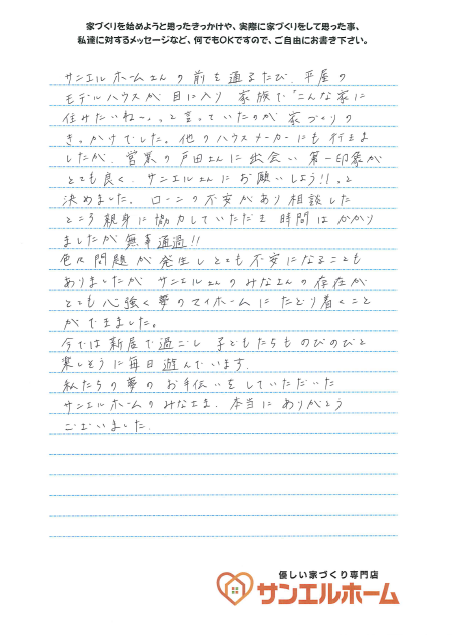 家づくりを始めようと思ったきっかけや、実際に家づくりをして思った事、
私達に対するメッセージなど、何でもOKですので、ご自由にお書き下さい。
サンエルホームさんの前を通るたび、平屋の
モデルハウスが目に入り 家族で「こんな家に
住みたいねー。」って言っていたのが 家づくりの
きっかけでした。他のハウスメーカーにも行きま
したが、営業の戸田さんに出会い 第一印象が
とても良く、サンエルさんにお願いしよう!!。と
決めました。ローンの不安があり相談した
ところ親身に協力していただき 時間はかかり
ましたが無事通過!!
色々問題が発生しとても不安になることも
ありましたが サンエルさんのみなさんの存在が
とても心強く夢のマイホームにたどり着くこと
ができました。
今では新居で過ごし 子どもたちものびのびと
楽しそうに毎日遊んでいます。
私たちの夢の お手伝いをしていただいた
サンエルホームのみなさま、本当にありがとう
ございました。
優しい家づくり専門店
サンエルホーム